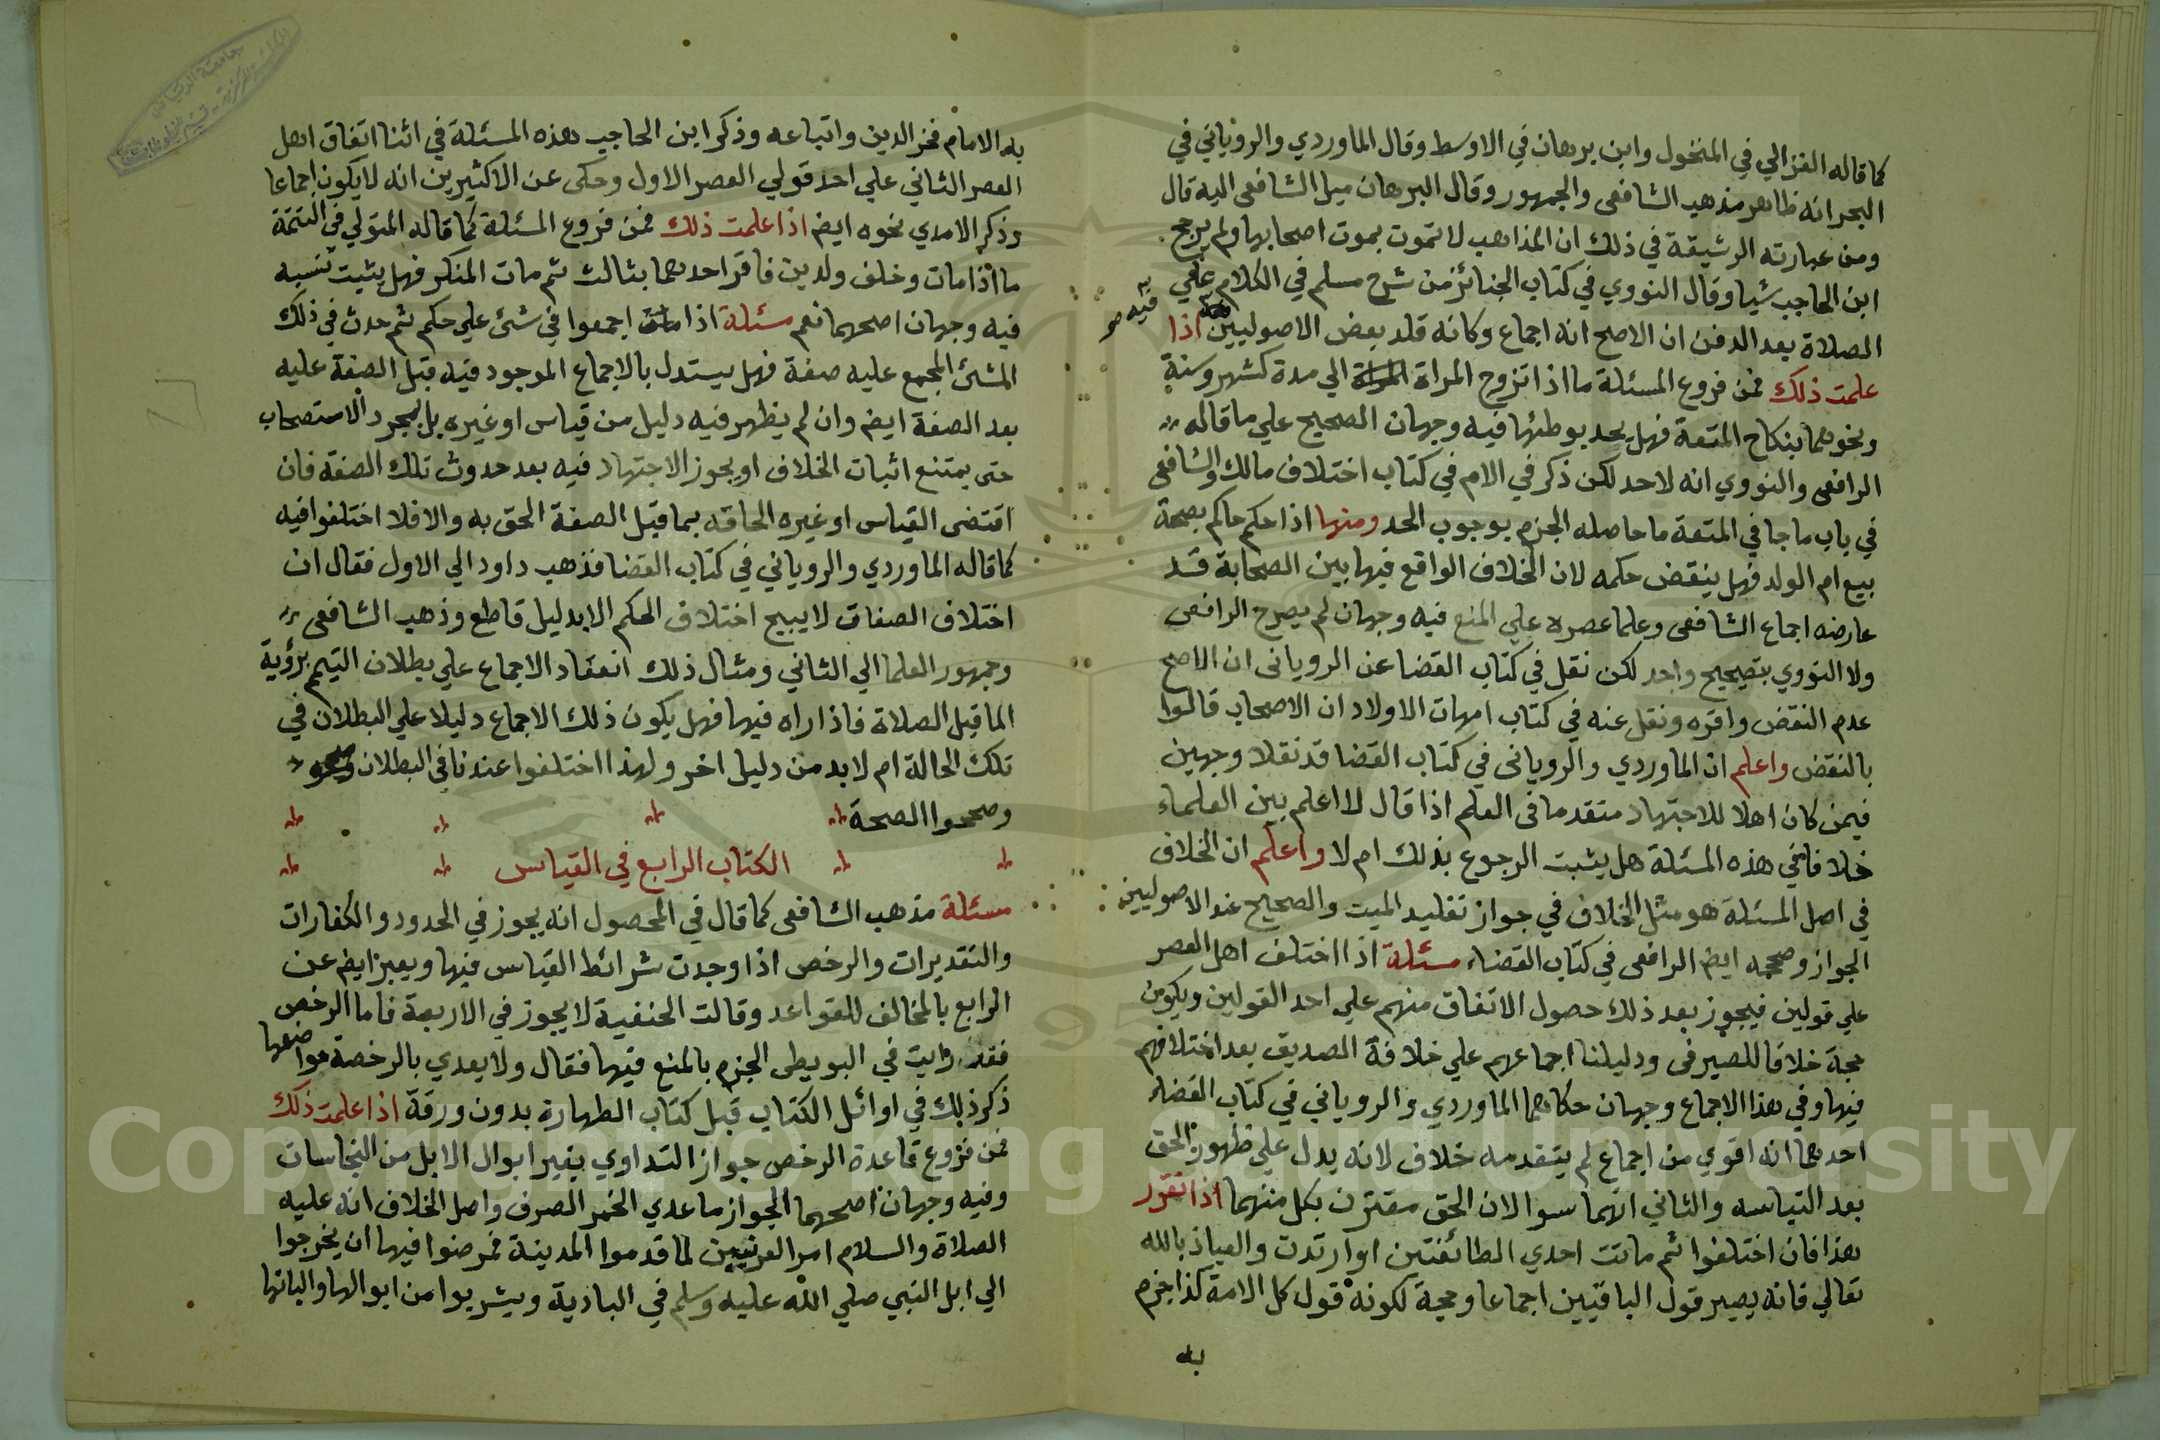 كما قاله الغزالي في المنخول وابن برهان في الاوسط وقال الماوردي والروياني في
البحر انه ظاهر مذهب الشافعي والجمهور وقال البرهان ميل الشافعي اليه قال
ومن عبارته الرشيقة في ذلك ان المذاهب لا تموت بموت اصحابها ولم يرجح
ابن الحاجب شيا وقال النووي في كتاب الجنائز من شرح مسلم في الكلام علي
الصلاة بعد الدفن ان الاصح انه اجماع وكانه قلد بعض الاصوليين فيه صح اذا
علمت ذلك فمن فروع المسئلة ما اذا تزوج المراة الي مدة كشهر وسنة
ونحوهما بنكاح المتعة فهل يحد بوطئها فيه وجهان الصحيح علي ما قاله
الرافعي والنووي انه لا حد لكن ذكر في الام في كتاب اختلاف مالك والشافعي
في باب ما جا في المتعة ما حاصله الجزم بوجوب الحد ومنها اذا حكم حاكم بصحة
بيع ام الولد فهل ينقض حكمه لان الخلاف الواقع فيها بين الصحابة قد
عارضه اجماع الشافعي وعلما عصره علي المنع فيه وجهان لم يصرح الرافعي
ولا النووي بتصحيح واحد لكن نقل في كتاب القضا عن الروياني ان الاصح
عدم النقض واقره ونقل عنه في كتاب امهات الاولاد ان الاصحاب قالوا
بالنقض واعلم ان الماوردي والروياني في كتاب القضا قد نقلا وجهين
فيمن كان اهلا للاجتهاد متقدما في العلم اذا قال لا اعلم بين العلماء
خلافا في هذه المسئلة هل يثبت الرجوع بذلك ام لا واعلم ان الخلاف
في اصل المسئلة هو مثل الخلاف في جواز تقليد الميت والصحيح عند الاصوليين
الجواز وصححه ايضا الرافعي في كتاب القضاء مسئلة اذا اختلف اهل العصر
علي قولين فيجوز بعد ذلك حصول الاتفاق منهم علي احد القولين ويكون
حجة خلافا للصيرفي ودليلنا اجماعهم علي خلافة الصديق بعد اختلافهم
فيها وفي هذا الاجماع وجهان حكاهما الماوردي والروياني في كتاب القضاء
احدهما انه اقوي من اجماع لم يتقدمه خلاف لانه يدل علي ظهور الحق
بعد التباسه والثاني انهما سوا لان الحق مقترن بكل منهما اذا تقرر
هذا فان اختلفوا ثم ماتت احدي الطائفتين او ارتدت والعياذ بالله
تعالي فانه يصير قول الباقيين اجماعا وحجة لكونه قول كل الامة كذا جزم
به
به الامام فخر الدين واتباعه وذكر ابن الحاجب هذه المسئلة في اثنا اتفاق اهل
العصر الثاني علي احد قولي العصر الاول وحكى عن الاكثيرين انه لا يكون اجماعا
وذكر الامدي نحوه ايضا اذا علمت ذلك فمن فروع المسئلة كما قاله المتولي في التتمة
ما اذا مات وخلف ولدين فاقر احدهما بثالث ثم مات المنكر فهل يثبت نسبه
فيه وجهان اصحهما نعم مسئلة اذا اجمعوا في شئ علي حكم ثم حدث في ذلك
الشئ المجمع عليه صفة فهل يستدل بالاجماع الموجود فيه قبل الصفة عليه
بعد الصفة ايضا وان لم يظهر فيه دليل من قياس او غيره بل بمجرد الاستصحاب
حتى يمتنع اثبات الخلاف او يجوز الاجتهاد فيه بعد حدوث تلك الصفة فان
اقتضى القياس او غيره الحاقه بما قبل الصفة الحق به والا فلا اختلفوا فيه
كما قاله الماوردي والروياني في كتاب القضا فذهب داود الي الاول فقال ان
اختلاف الصفات لا يبيح اختلاف الحكم الا بدليل قاطع وذهب الشافعي
وجمهور العلما الي الثاني ومثال ذلك انعقاد الاجماع علي بطلان التيمم برؤية
الما قبل الصلاة فاذا راه فيها فهل يكون ذلك الاجماع دليلا علي البطلان في
تلك الحالة ام لا بد من دليل اخر ولهذا اختلفوا عندنا في البطلان
وصححوا الصحة
الكتاب الرابع في القياس
مسئلة مذهب الشافعي كما قال في المحصول انه يجوز في الحدود والكفارات
والتقديرات والرخص اذا وجدت شرائط القياس فيها ويعبر ايضا عن
الرابع بالمخالف للقواعد وقالت الحنفية لا يجوز في الاربعة فاما الرخص
فقد رايت في البويطي الجزم بالمنع فيها فقال ولا يعدي بالرخصة مواضعها
ذكر ذلك في اوائل الكتاب قبل كتاب الطهارة بدون ورقة اذا علمت ذلك
فمن فروع قاعدة الرخص جواز التداوي بغير ابوال الابل من النجاسات
وفيه وجهان اصحهما الجواز ما عدي الخمر الصرف واصل الخلاف انه عليه
الصلاة والسلام امر العرنيين لما قدموا المدينة فمرضوا فيها ان يخرجوا
الي ابل النبي صلي الله عليه وسلم في البادية ويشربوا من ابوالها والبانها
Copyright © King Saud University